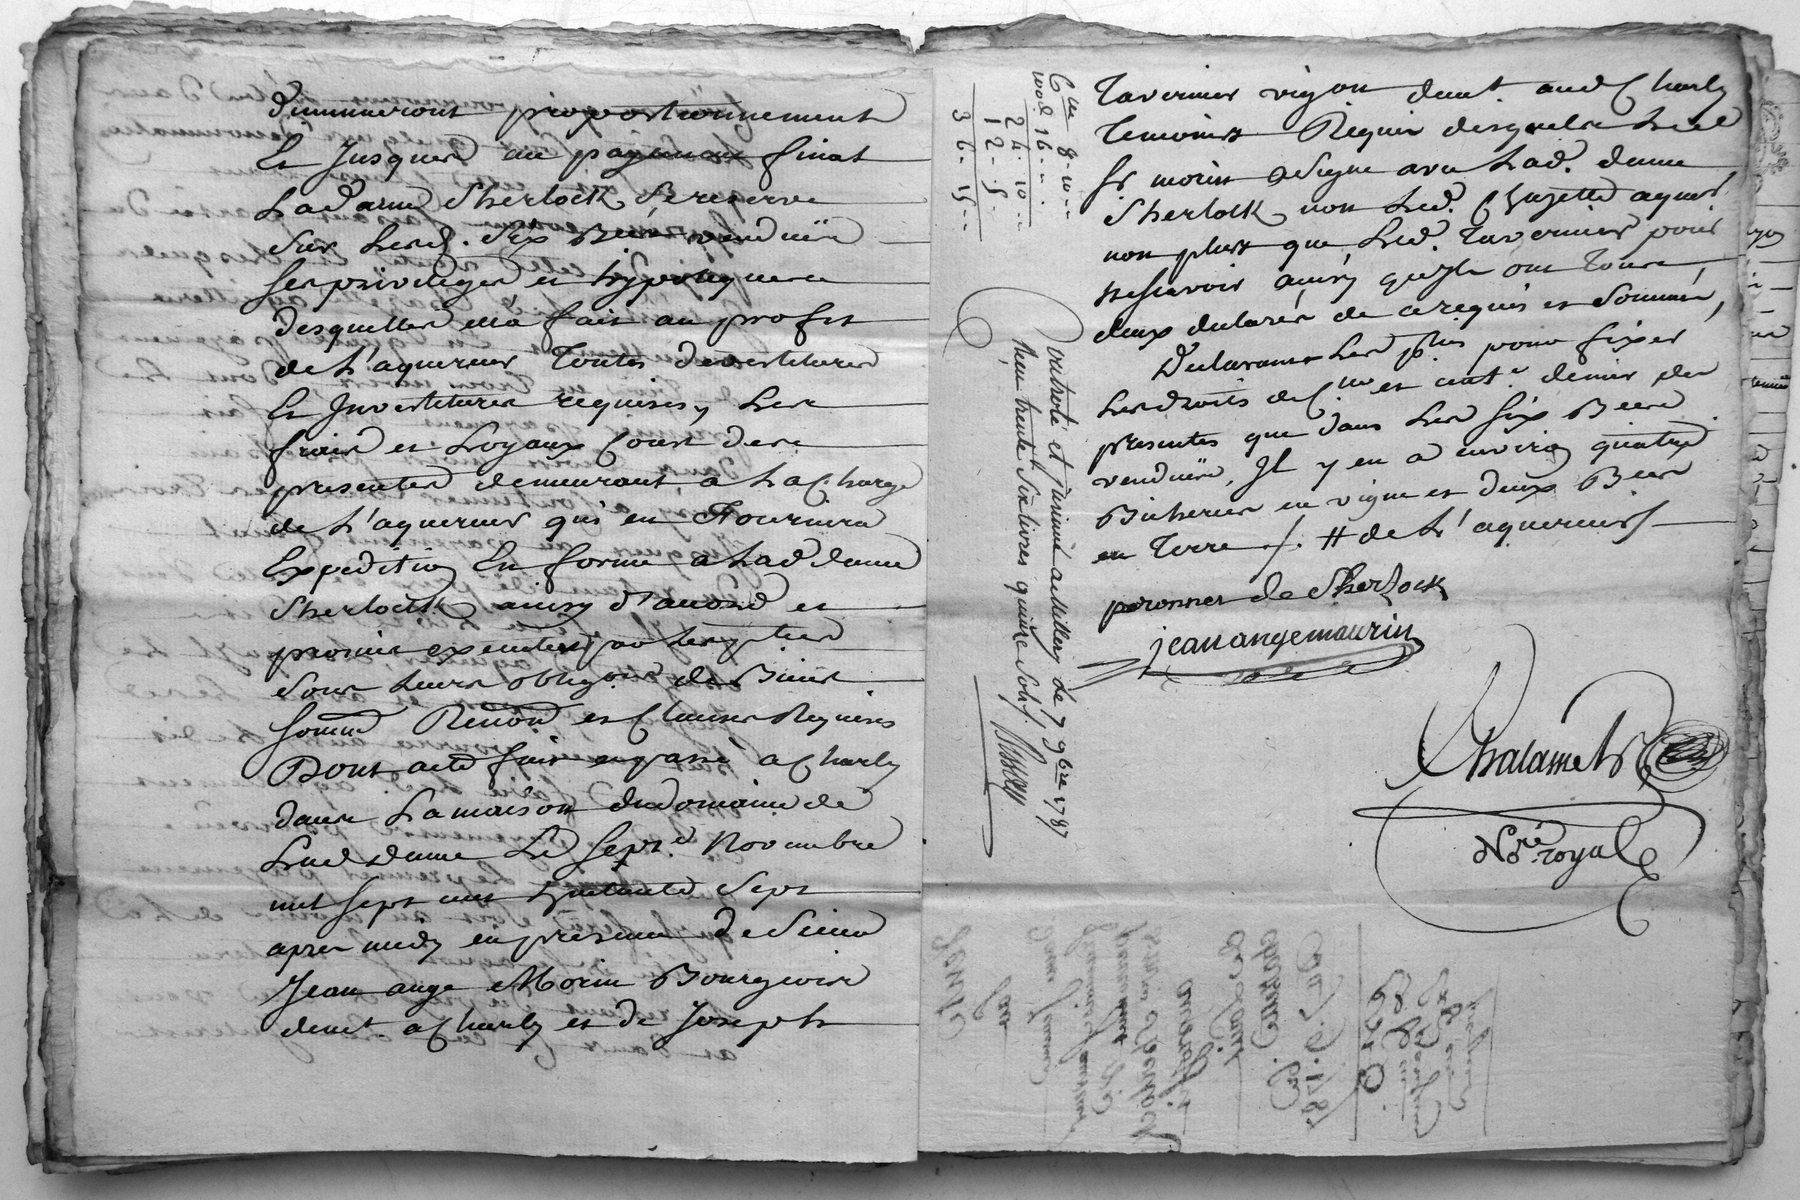 diminueront proportionnement
Et Jusques au payement final
Lad. dame Sherlock Se reserve
Sur Lesd. Six Bicherées vendües
Ses privileges et hypoteques
desquelles elle a fait au profit
de L'aquereur Toutes devestitures
Et Investitures requises, Les
frais et Loyaux Cout des
presentes demeurant a La Charge
de L'aquereur qui en Fournira
Expedition En forme a Lad dame
Sherlock ainsy d'accord et
promis executer par les parties
Sous Leurs oblig.ons de Biens
Soum.s Renon.s et Clauses Requises
Dont acte fait et passé a Charly
dans La maison du domaine de
Lad dame Le Sept.e Novembre
mil Sept cent huitante Sept
apres midy en presence de Sieur
Jean ange Morin Bourgeois
demt. a Charly et de Joseph
Tavernier vigon demt. aud Charly
Temoins Requis desquels Led
Sr morin a Signé avec Lad. dame
Sherlock non Led. Chazette aquer.
non plus que Led. Tavernier pour
ne Scavoir ainsy qu'ils ont Tous
deux declarés de ce requis et Sommés,
Declarant Les pties pour fixer
Les droits de C.lle et cent.e denier des
presentes que dans Les Six Bicherées
vendües, Il y en a environ quatre
Bicherées en vigne et deux Bicherées
en Terre /. # de L'aquereur /
peronnet de Sherlock
jean ange maurin
Chalamet
Nre. royal
C.lle 8. 10 ..
16 ..
24. 10 ..
12 .. 5
36 .. 15 ..
Controlé et Insinué a Millery le 7 9bre 1787
Reçu trente Six livres quinze Sols /.